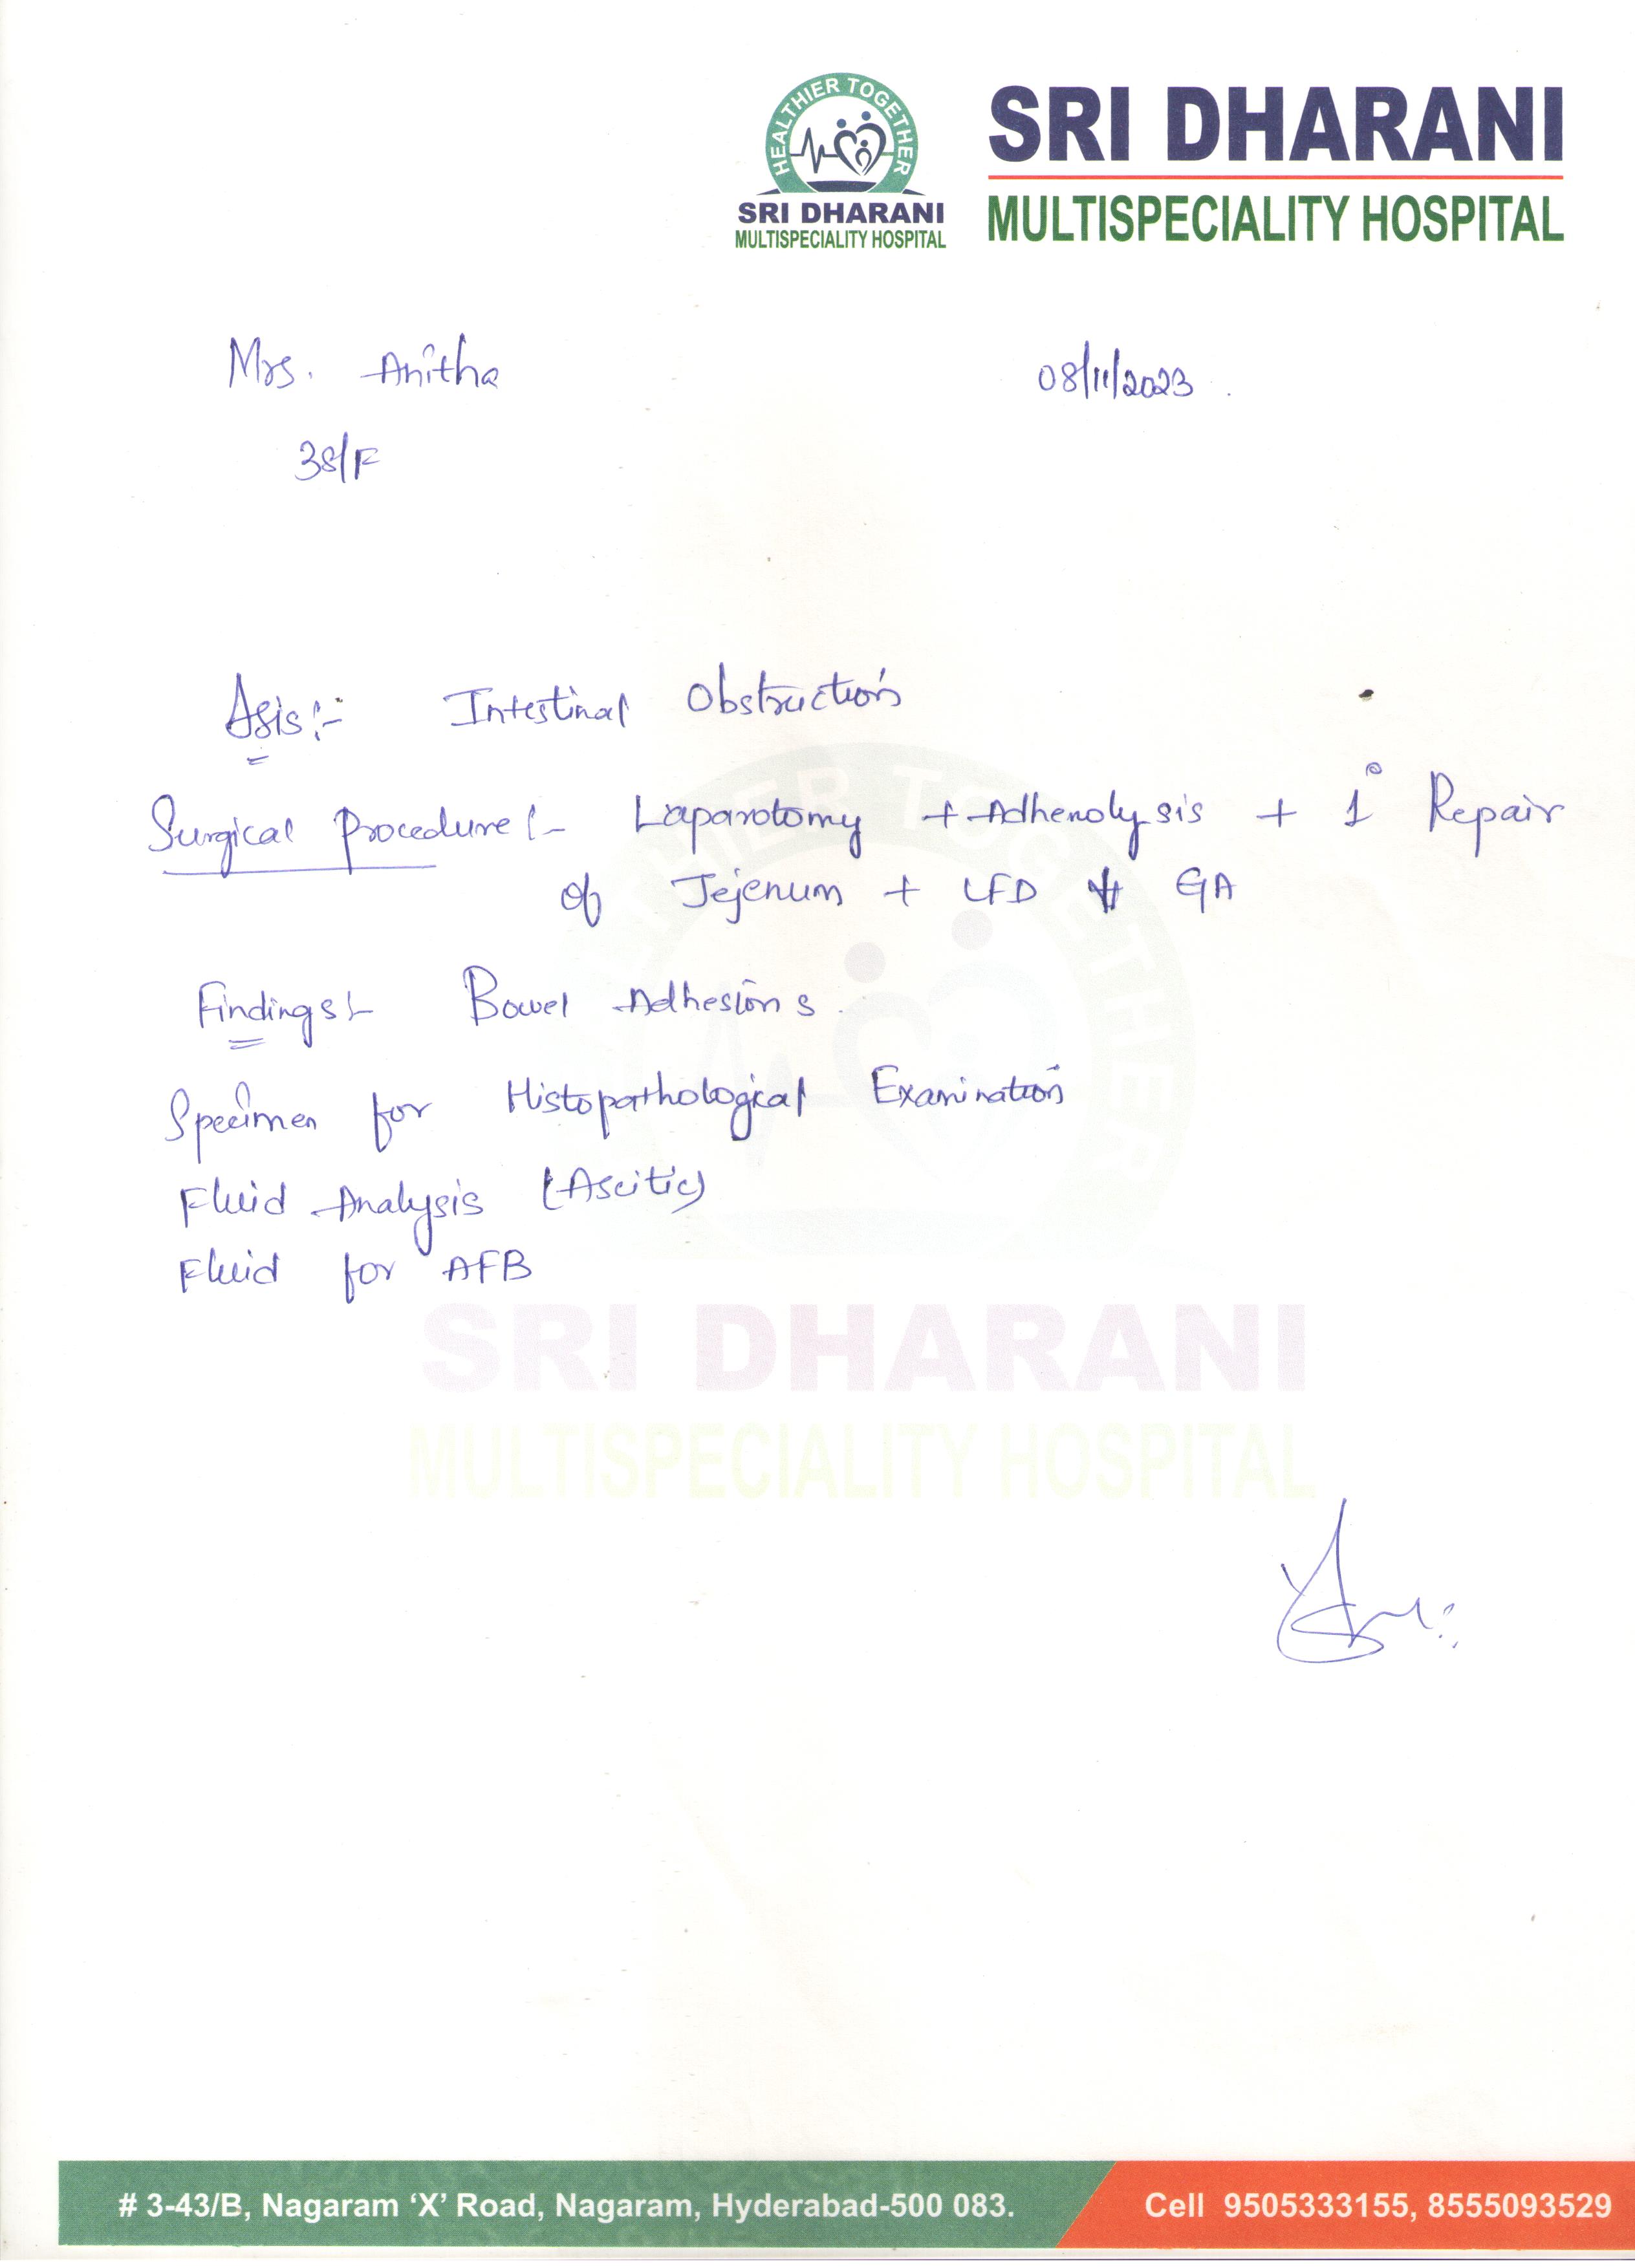 HEALTHIER TOGETHER
SRI DHARANI
MULTISPECIALITY HOSPITAL
SRI DHARANI
MULTISPECIALITY HOSPITAL
Mrs. Anitha 08/11/2023
38/F
Δsis:- Intestinal Obstruction
Surgical Procedure:- Laparotomy + Adhenolysis + 1° Repair
of Jejenum + LFD GA
Findings:- Bowel Adhesions.
Specimen for Histopathological Examination
Fluid Analysis (Ascitic)
Fluid for AFB
HEALTHIER TOGETHER
SRI DHARANI
MULTISPECIALITY HOSPITAL
# 3-43/B, Nagaram ‘X’ Road, Nagaram, Hyderabad-500 083. Cell 9505333155, 8555093529